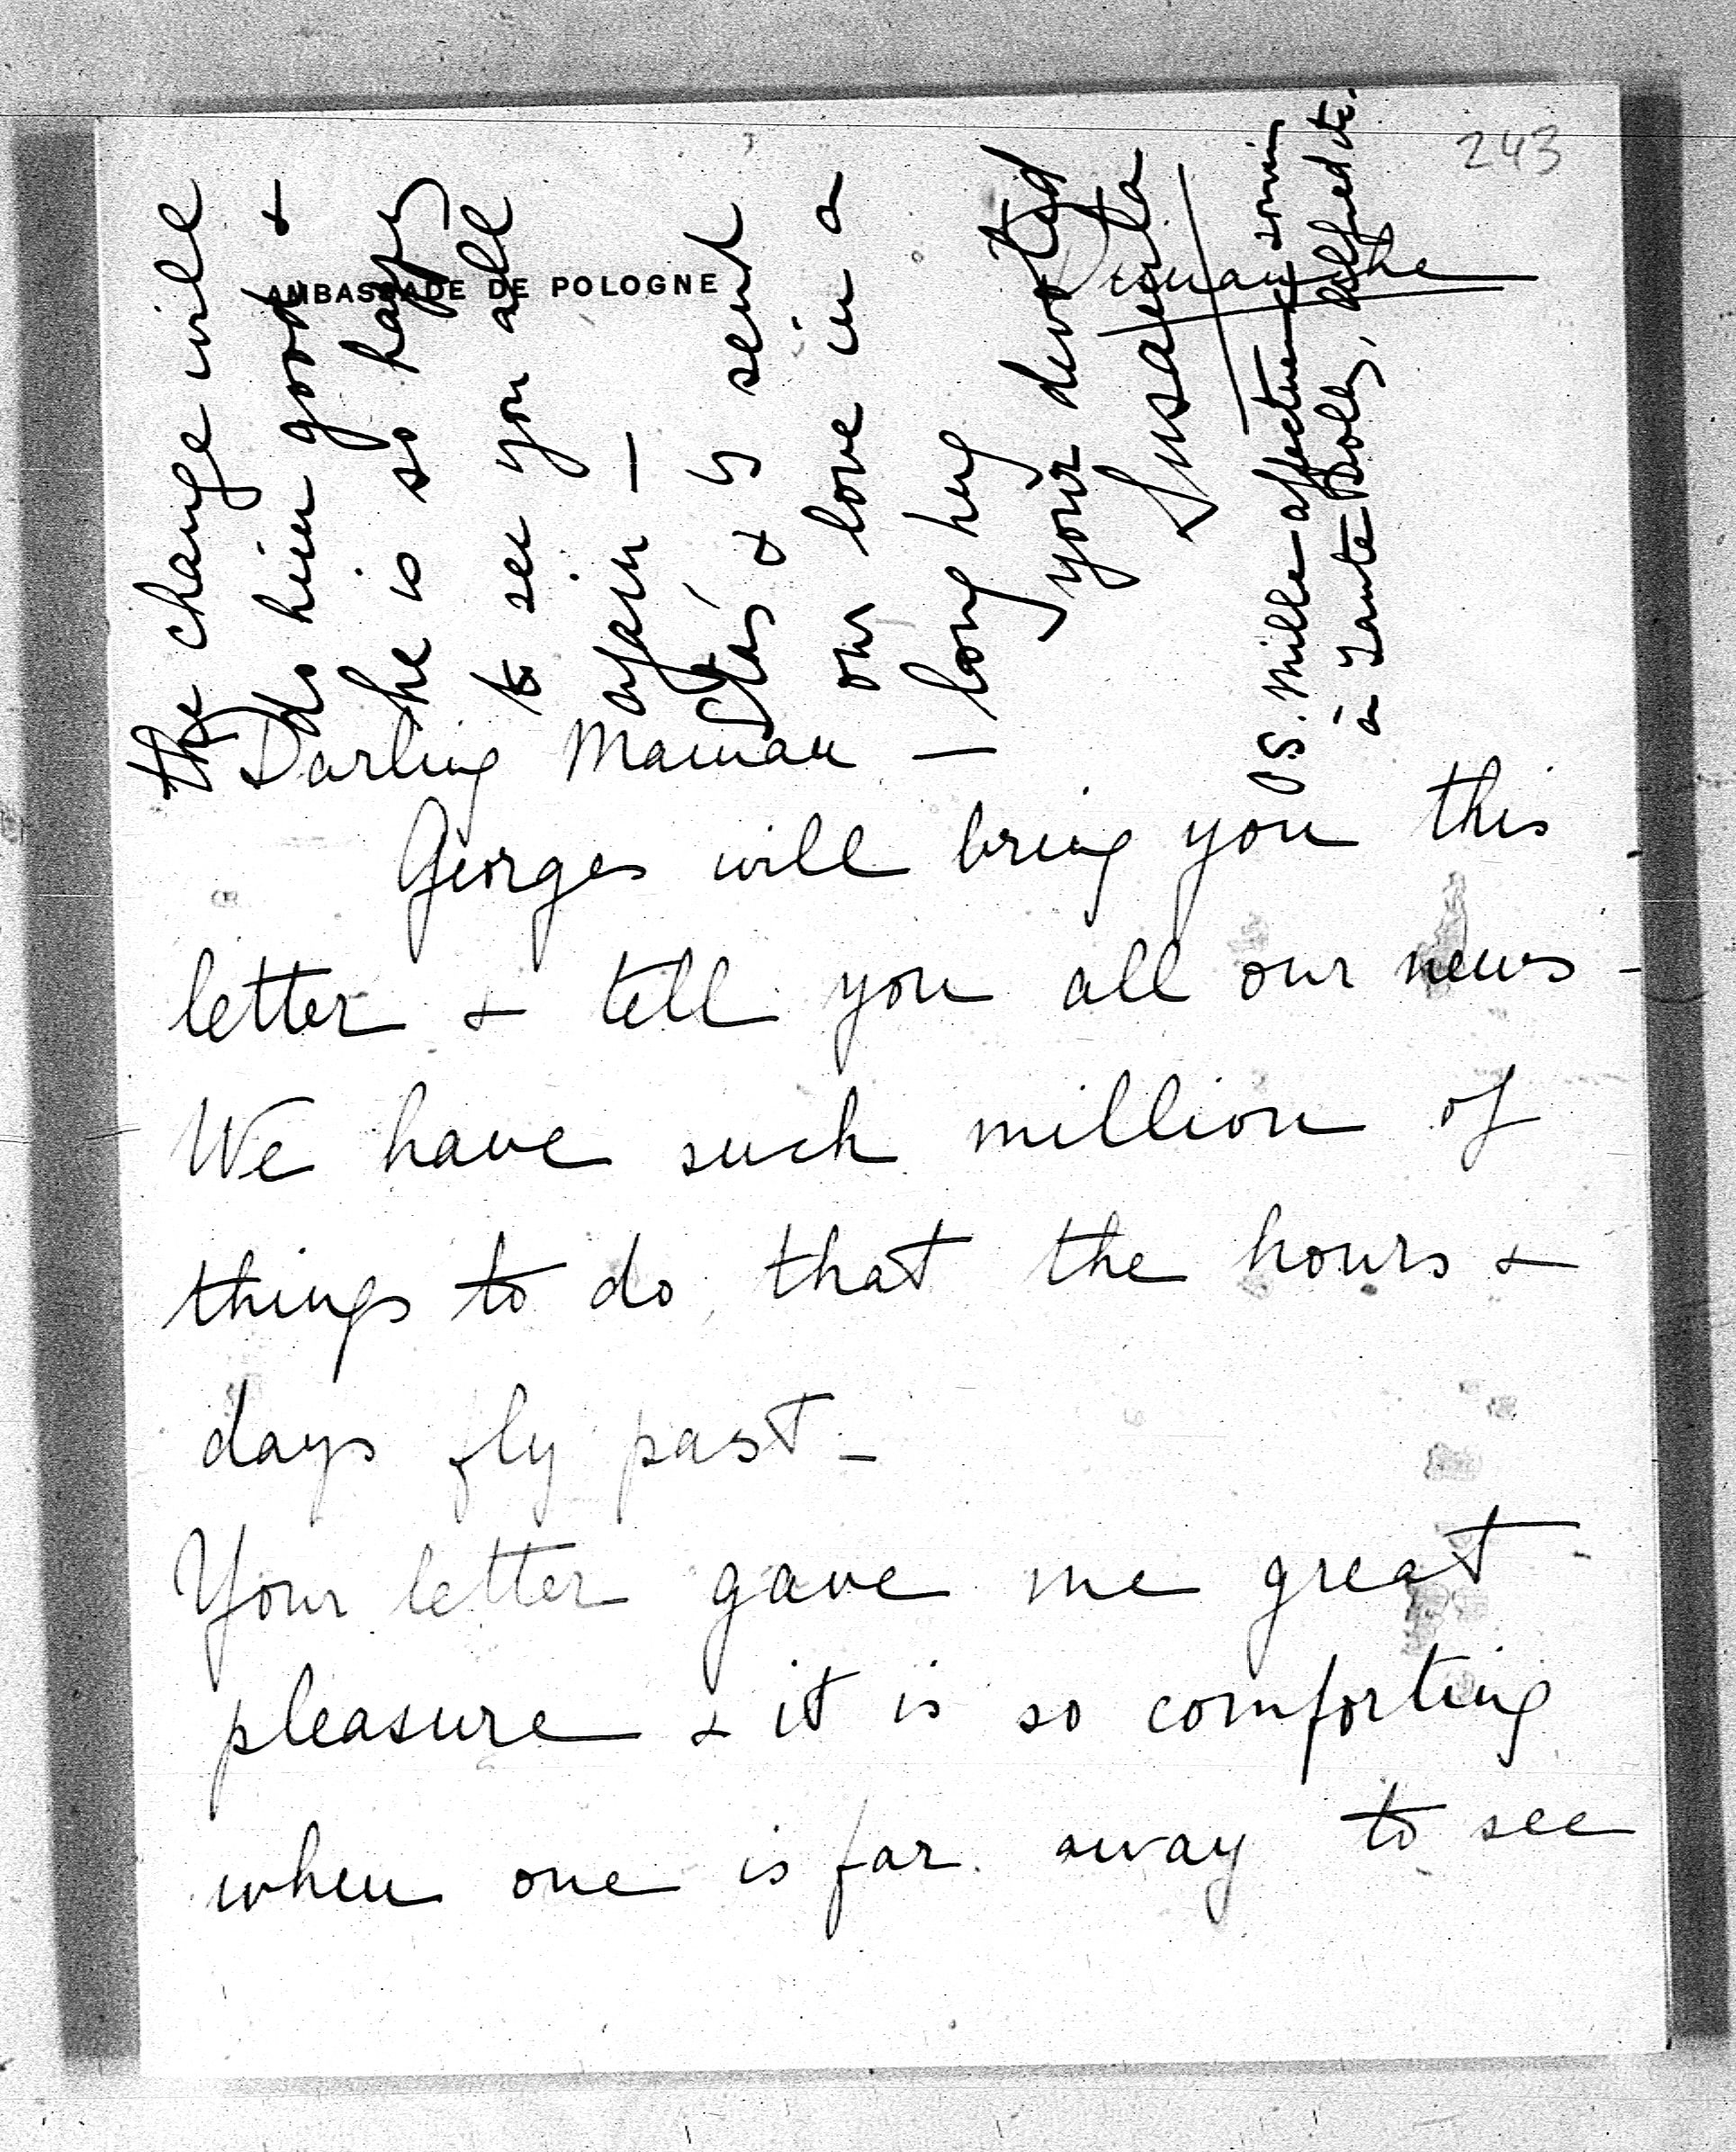 243
AMBASSADE DE POLOGNE
Dimanche
Darling Maman —
Georges will bring you this
letter & tell you all our news -
We have such million of
things to do that the hours &
days fly past -
Your letter gave me great
pleasure & it is so comforting
when one is far away to see
the change will
do him good &
he is so happy
to see you all
again —
Staś & y send
our love in a
long hug
your devoted
P.S. Mille affectueux
à Tante Dolly, Alfred etc.